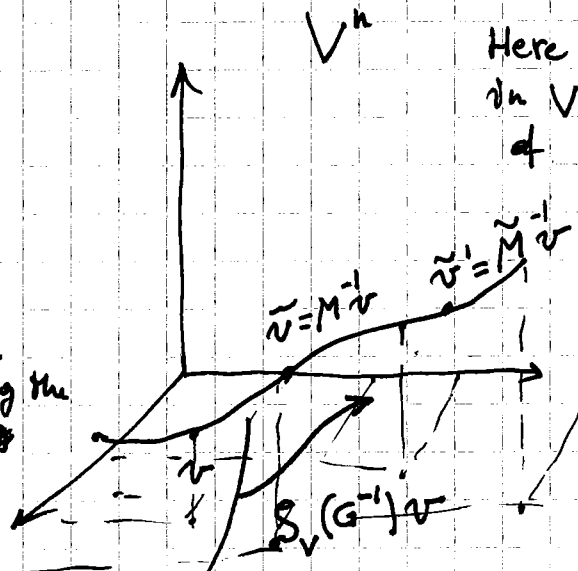 Vⁿ
Here
in V
of
ṽ' = M̃⁻¹v
ṽ = M⁻¹v
g the
v
S_V(G⁻¹)v